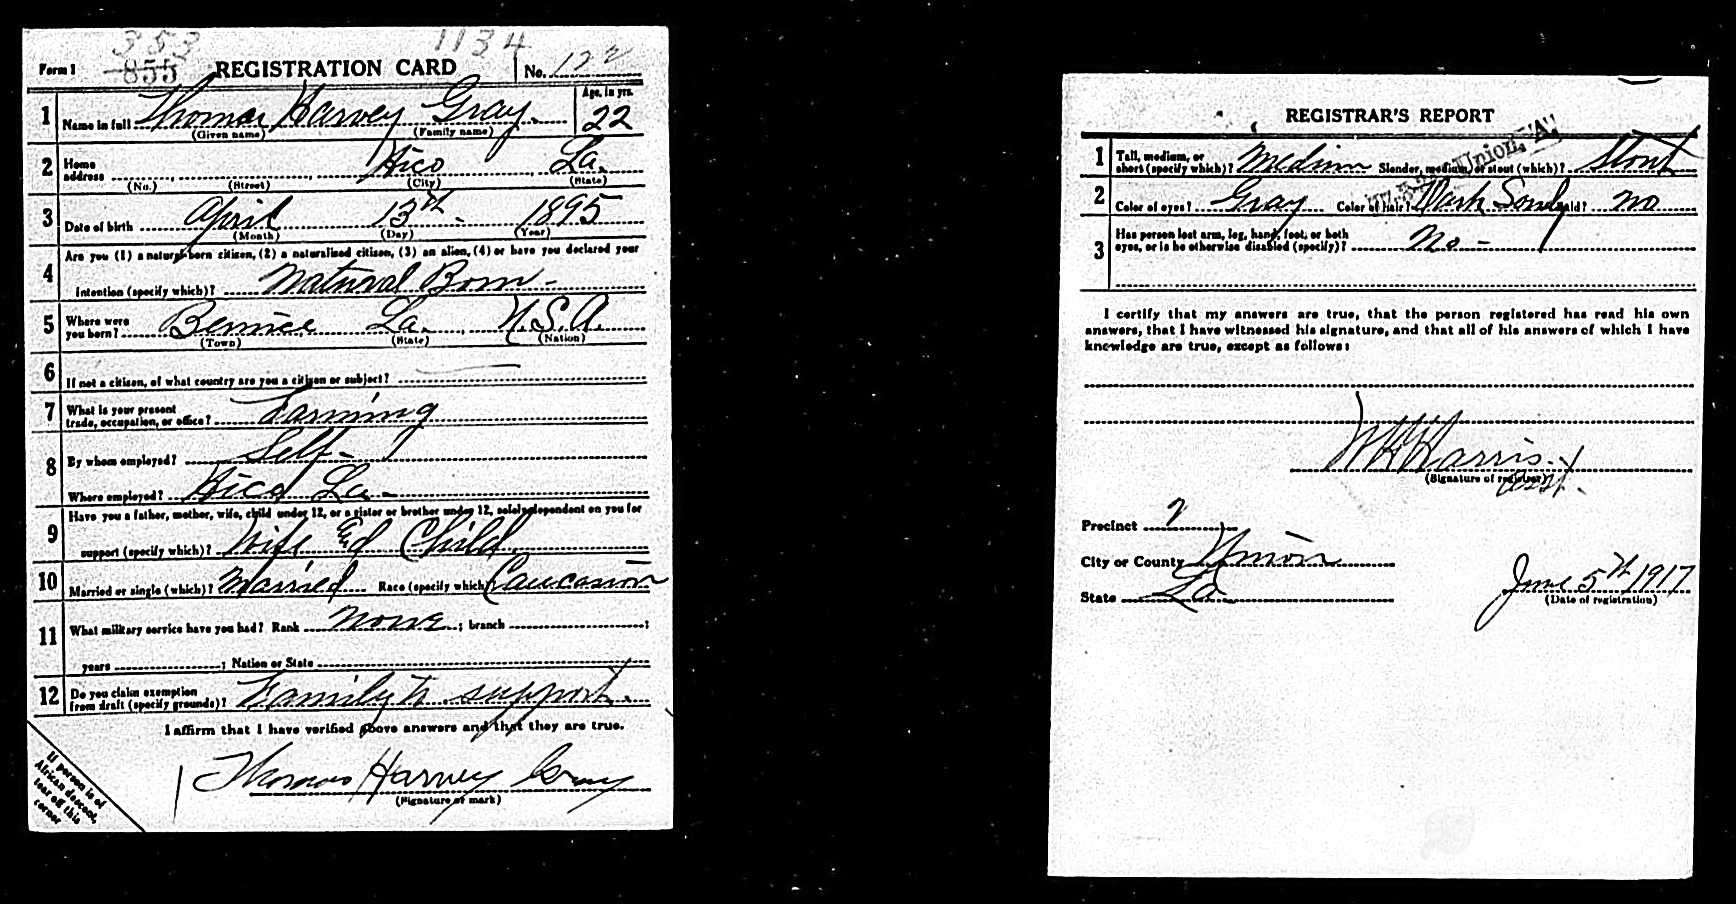 353 1134
Form 1 855 REGISTRATION CARD No. 122
1 Name in full Thomas Harvey Gray. Age, in yrs. 22
(Given name) (Family name)
2 Home address Hico La.
(No.) (Street) (City) (State)
3 Date of birth April 13th 1895
(Month) (Day) (Year)
Are you (1) a natural-born citizen, (2) a naturalized citizen, (3) an alien, (4) or have you declared your
4 intention (specify which)? Natural Born -
5 Where were you born? Bernice La. U.S.A.
(Town) (State) (Nation)
6 If not a citizen, of what country are you a citizen or subject?
7 What is your present trade, occupation, or office? Farming
8 By whom employed? Self -
Where employed? Hico La -
Have you a father, mother, wife, child under 12, or a sister or brother under 12, solely dependent on you for
9 support (specify which)? Wife Child
10 Married or single (which)? Married Race (specify which)? Caucasion
11 What military service have you had? Rank None ; branch ;
years ; Nation or State
12 Do you claim exemption from draft (specify grounds)? Family to support.
I affirm that I have verified above answers and that they are true.
Thomas Harvey Gray
(Signature or mark)
If person is of
African descent,
tear off this
corner
REGISTRAR'S REPORT
1 Tall, medium, or short (specify which)? Medium Slender, medium, or stout (which)? Stout
2 Color of eyes? Gray Color of hair? Dark Sandy Bald? no
3 Has person lost arm, leg, hand, foot, or both eyes, or is he otherwise disabled (specify)? No -
Union, LA
I certify that my answers are true, that the person registered has read his own
answers, that I have witnessed his signature, and that all of his answers of which I have
knowledge are true, except as follows:
W H Harris
(Signature of registrar) asst.
Precinct 2
City or County Union
State La
June 5th 1917
(Date of registration)